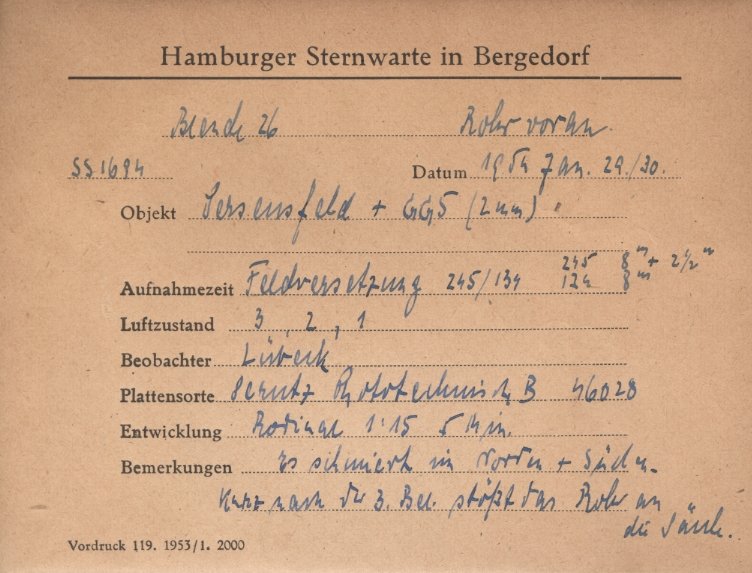 Hamburger Sternwarte in Bergedorf
Blende 26 Rohr voran.
SS1694 Datum 1954 Jan. 29./30.
Objekt Sersensfeld + GG5 (2mm)
245 8ᵐ + 2½ᵐ
Aufnahmezeit Feldversetzung 245/134 124 8ᵐ
Luftzustand 3, 2, 1
Beobachter Lübeck
Plattensorte Perutz Phototechnisch B 46028
Entwicklung Rodinal 1:15 5 Min.
Bemerkungen Es schmiert im Norden + Süden.
Kurz nach der 3. Bel. stößt das Rohr an
die Säule.
Vordruck 119. 1953/1. 2000